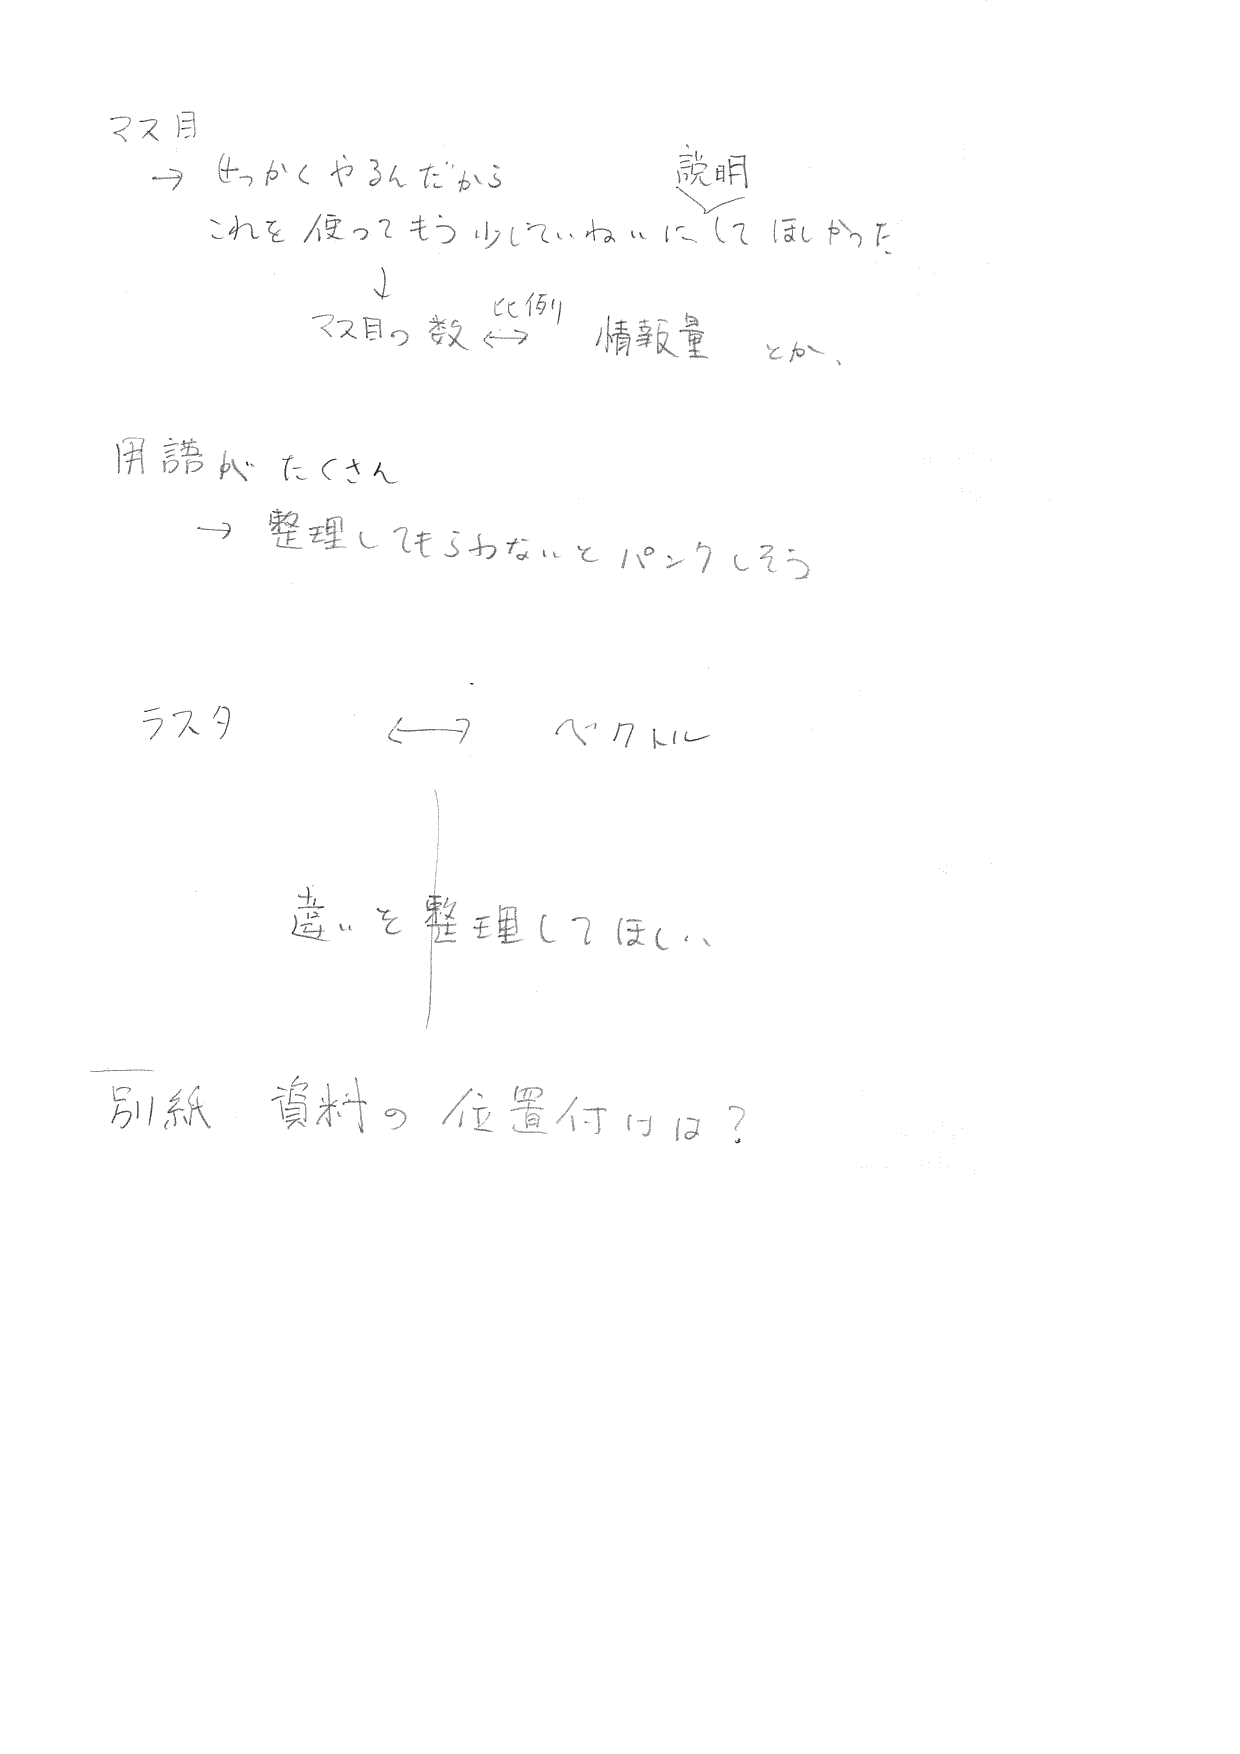 マス目
→ せっかくやるんだから
説明
これを使ってもう少していねいにしてほしかった
↓
マス目の数 ↔ 情報量 とか、
比例
用語がたくさん
→ 整理してもらわないとパンクしそう
ラスタ ↔ ベクトル
違いを整理してほしい
別紙 資料の位置付けは?